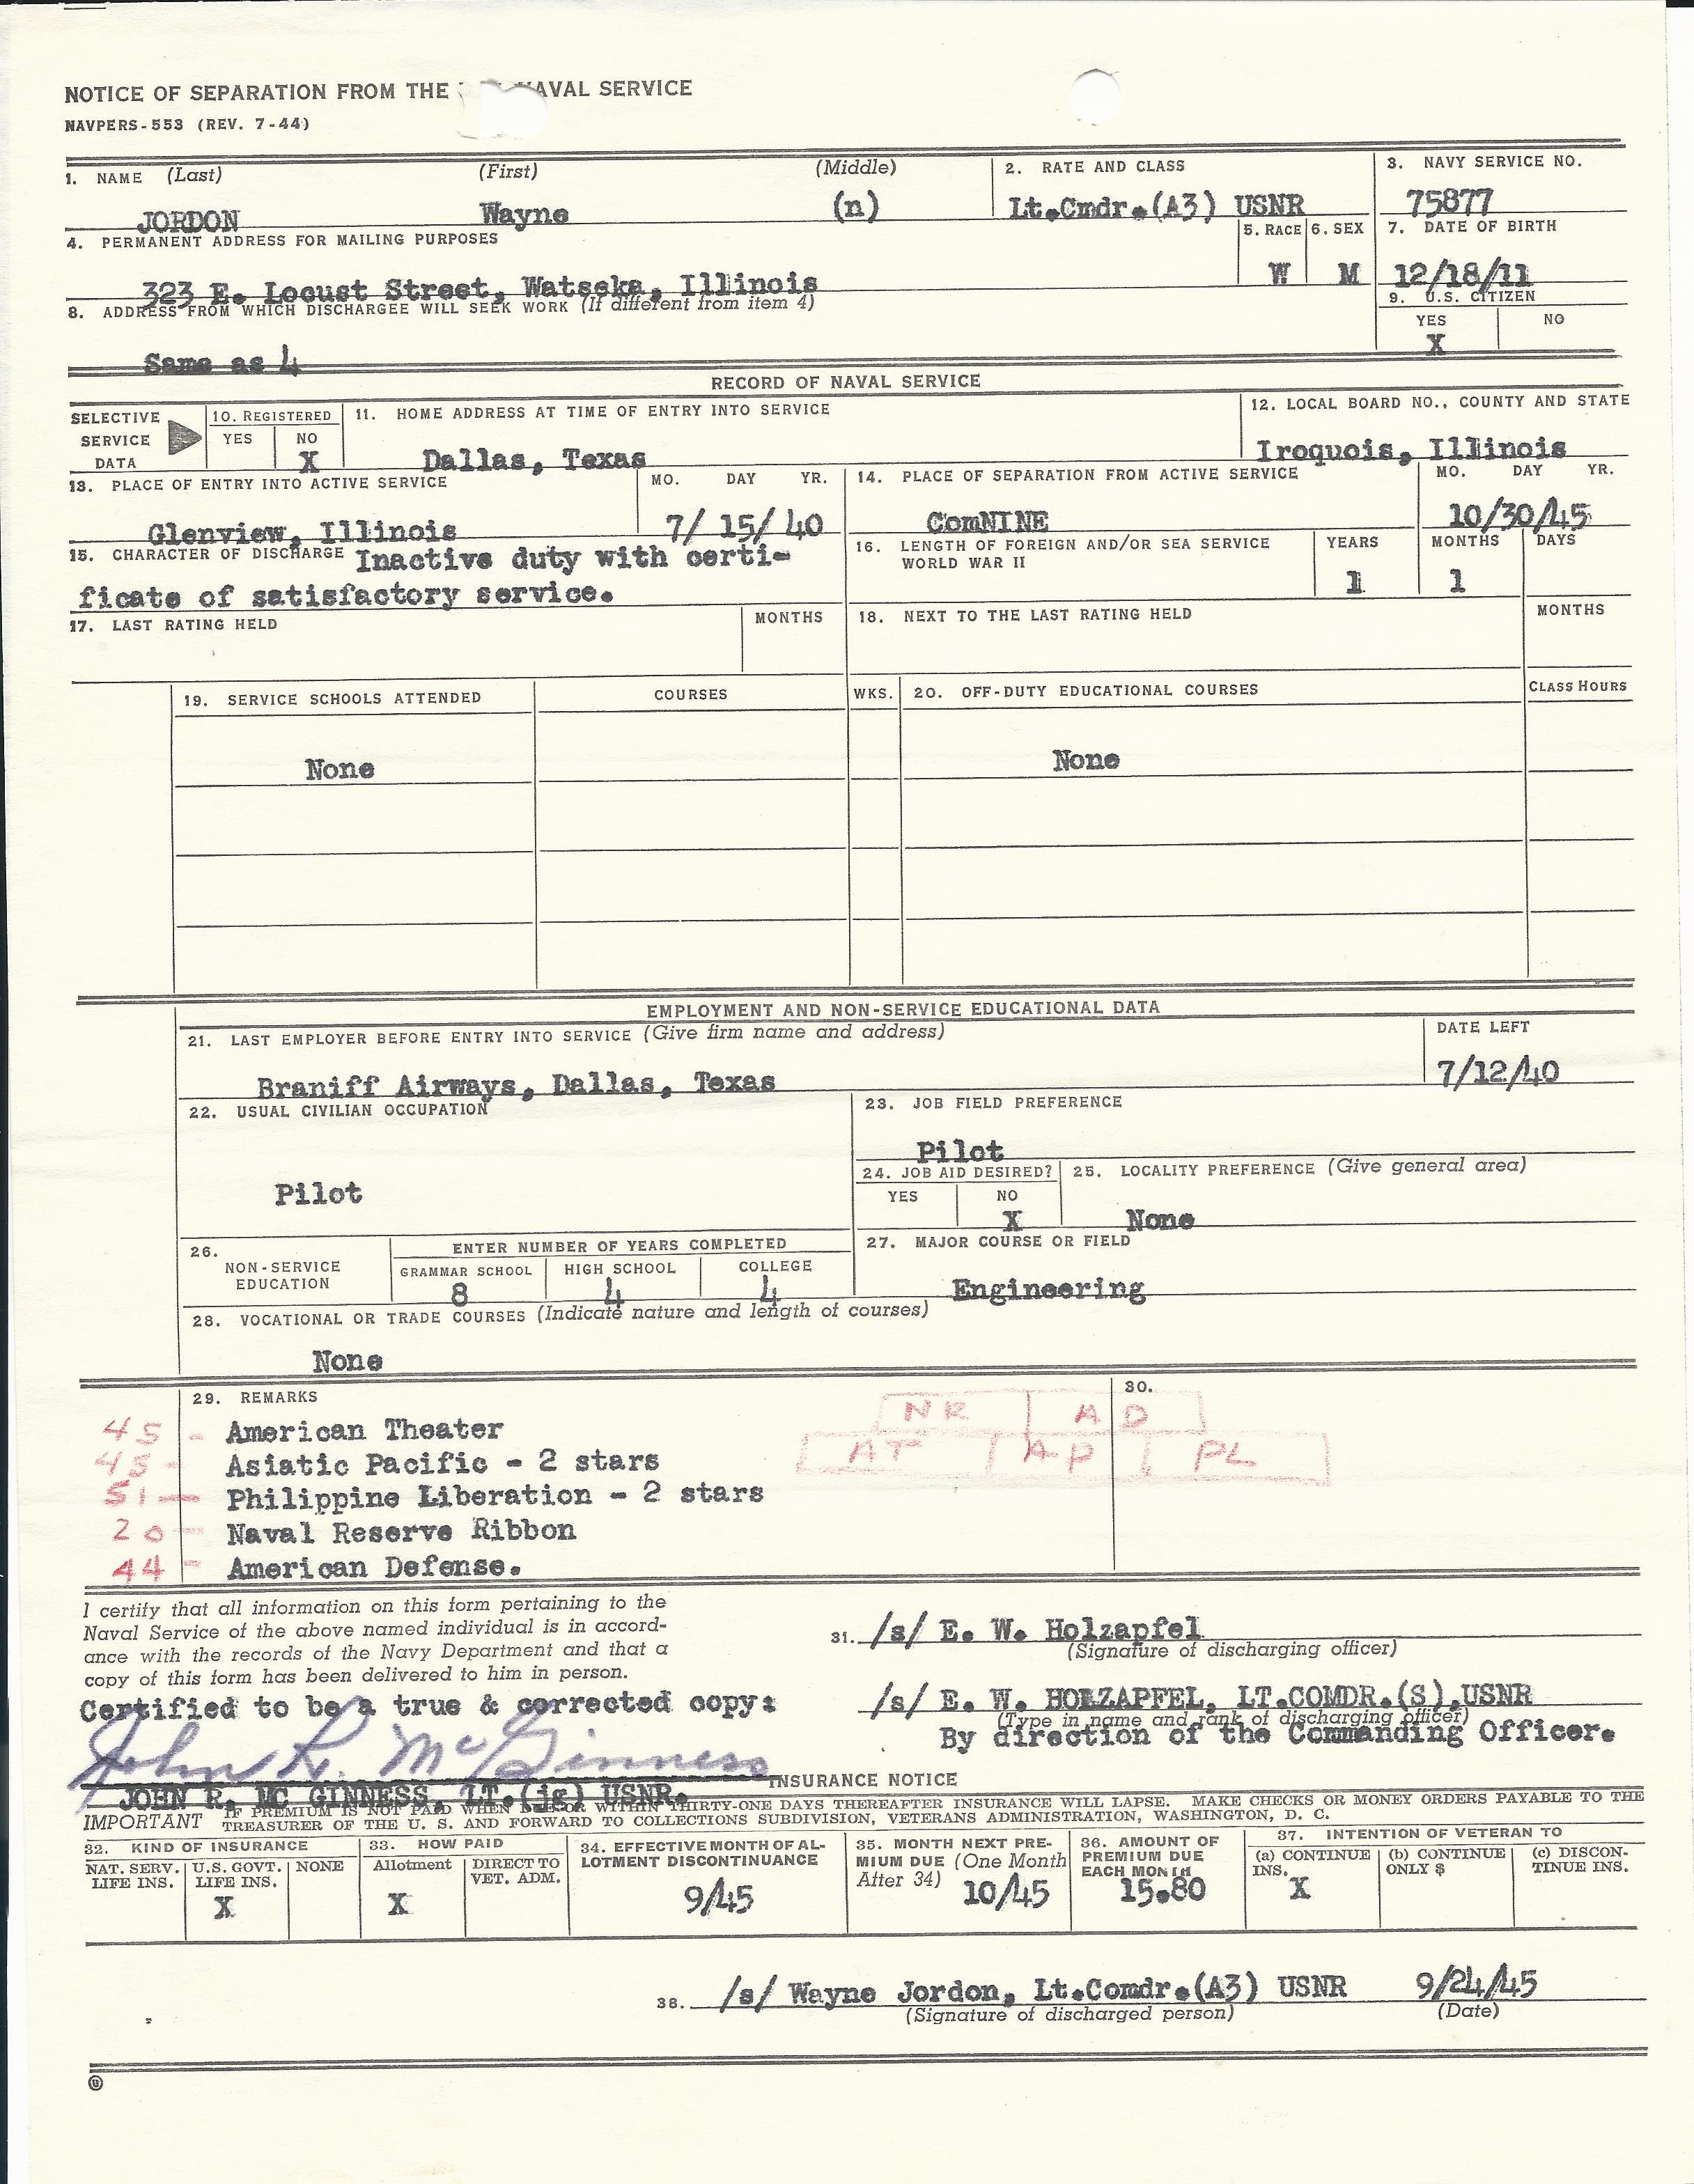 NOTICE OF SEPARATION FROM THE AVAL SERVICE
NAVPERS-553 (REV. 7-44)
1. NAME (Last) (First) (Middle)
JORDON Wayne (n)
2. RATE AND CLASS
Lt.Cmdr.(A3) USNR
3. NAVY SERVICE NO.
75877
4. PERMANENT ADDRESS FOR MAILING PURPOSES
323 E. Locust Street, Watseka, Illinois
5. RACE
W
6. SEX
M
7. DATE OF BIRTH
12/18/11
8. ADDRESS FROM WHICH DISCHARGEE WILL SEEK WORK (If different from item 4)
Same as 4
9. U.S. CITIZEN
YES NO
X
RECORD OF NAVAL SERVICE
SELECTIVE
SERVICE
DATA
10. REGISTERED
YES NO
X
11. HOME ADDRESS AT TIME OF ENTRY INTO SERVICE
Dallas, Texas
12. LOCAL BOARD NO., COUNTY AND STATE
Iroquois, Illinois
13. PLACE OF ENTRY INTO ACTIVE SERVICE MO. DAY YR.
Glenview, Illinois 7/ 15/ 40
14. PLACE OF SEPARATION FROM ACTIVE SERVICE MO. DAY YR.
ComNINE 10/30/45
15. CHARACTER OF DISCHARGE Inactive duty with certi-
ficate of satisfactory service.
16. LENGTH OF FOREIGN AND/OR SEA SERVICE
WORLD WAR II
YEARS MONTHS DAYS
1 1
17. LAST RATING HELD MONTHS
18. NEXT TO THE LAST RATING HELD MONTHS
19. SERVICE SCHOOLS ATTENDED COURSES WKS.
None
20. OFF-DUTY EDUCATIONAL COURSES CLASS HOURS
None
EMPLOYMENT AND NON-SERVICE EDUCATIONAL DATA
21. LAST EMPLOYER BEFORE ENTRY INTO SERVICE (Give firm name and address)
Braniff Airways, Dallas, Texas
DATE LEFT
7/12/40
22. USUAL CIVILIAN OCCUPATION
Pilot
23. JOB FIELD PREFERENCE
Pilot
24. JOB AID DESIRED?
YES NO
X
25. LOCALITY PREFERENCE (Give general area)
None
26.
NON-SERVICE
EDUCATION
ENTER NUMBER OF YEARS COMPLETED
GRAMMAR SCHOOL HIGH SCHOOL COLLEGE
8 4 4
27. MAJOR COURSE OR FIELD
Engineering
28. VOCATIONAL OR TRADE COURSES (Indicate nature and length of courses)
None
29. REMARKS
45 - American Theater
45 - Asiatic Pacific - 2 stars
51 - Philippine Liberation - 2 stars
20 - Naval Reserve Ribbon
44 - American Defense.
30.
NR AD
AT AP PL
I certify that all information on this form pertaining to the
Naval Service of the above named individual is in accord-
ance with the records of the Navy Department and that a
copy of this form has been delivered to him in person.
Certified to be a true & corrected copy:
John R. McGinness
JOHN R. MC GINNESS, LT.(jg) USNR.
31. /s/ E. W. Holzapfel
(Signature of discharging officer)
/s/ E. W. HOLZAPFEL, LT.COMDR.(S),USNR
(Type in name and rank of discharging officer)
By direction of the Commanding Officer.
INSURANCE NOTICE
IMPORTANT IF PREMIUM IS NOT PAID WHEN DUE OR WITHIN THIRTY-ONE DAYS THEREAFTER INSURANCE WILL LAPSE. MAKE CHECKS OR MONEY ORDERS PAYABLE TO THE
TREASURER OF THE U. S. AND FORWARD TO COLLECTIONS SUBDIVISION, VETERANS ADMINISTRATION, WASHINGTON, D. C.
32. KIND OF INSURANCE
NAT. SERV. LIFE INS. U.S. GOVT. LIFE INS. NONE
X
33. HOW PAID
Allotment DIRECT TO VET. ADM.
X
34. EFFECTIVE MONTH OF AL-
LOTMENT DISCONTINUANCE
9/45
35. MONTH NEXT PRE-
MIUM DUE (One Month
After 34) 10/45
36. AMOUNT OF
PREMIUM DUE
EACH MONTH
15.80
37. INTENTION OF VETERAN TO
(a) CONTINUE INS. (b) CONTINUE ONLY $ (c) DISCON-
TINUE INS.
X
38. /s/ Wayne Jordon, Lt.Comdr.(A3) USNR 9/24/45
(Signature of discharged person) (Date)